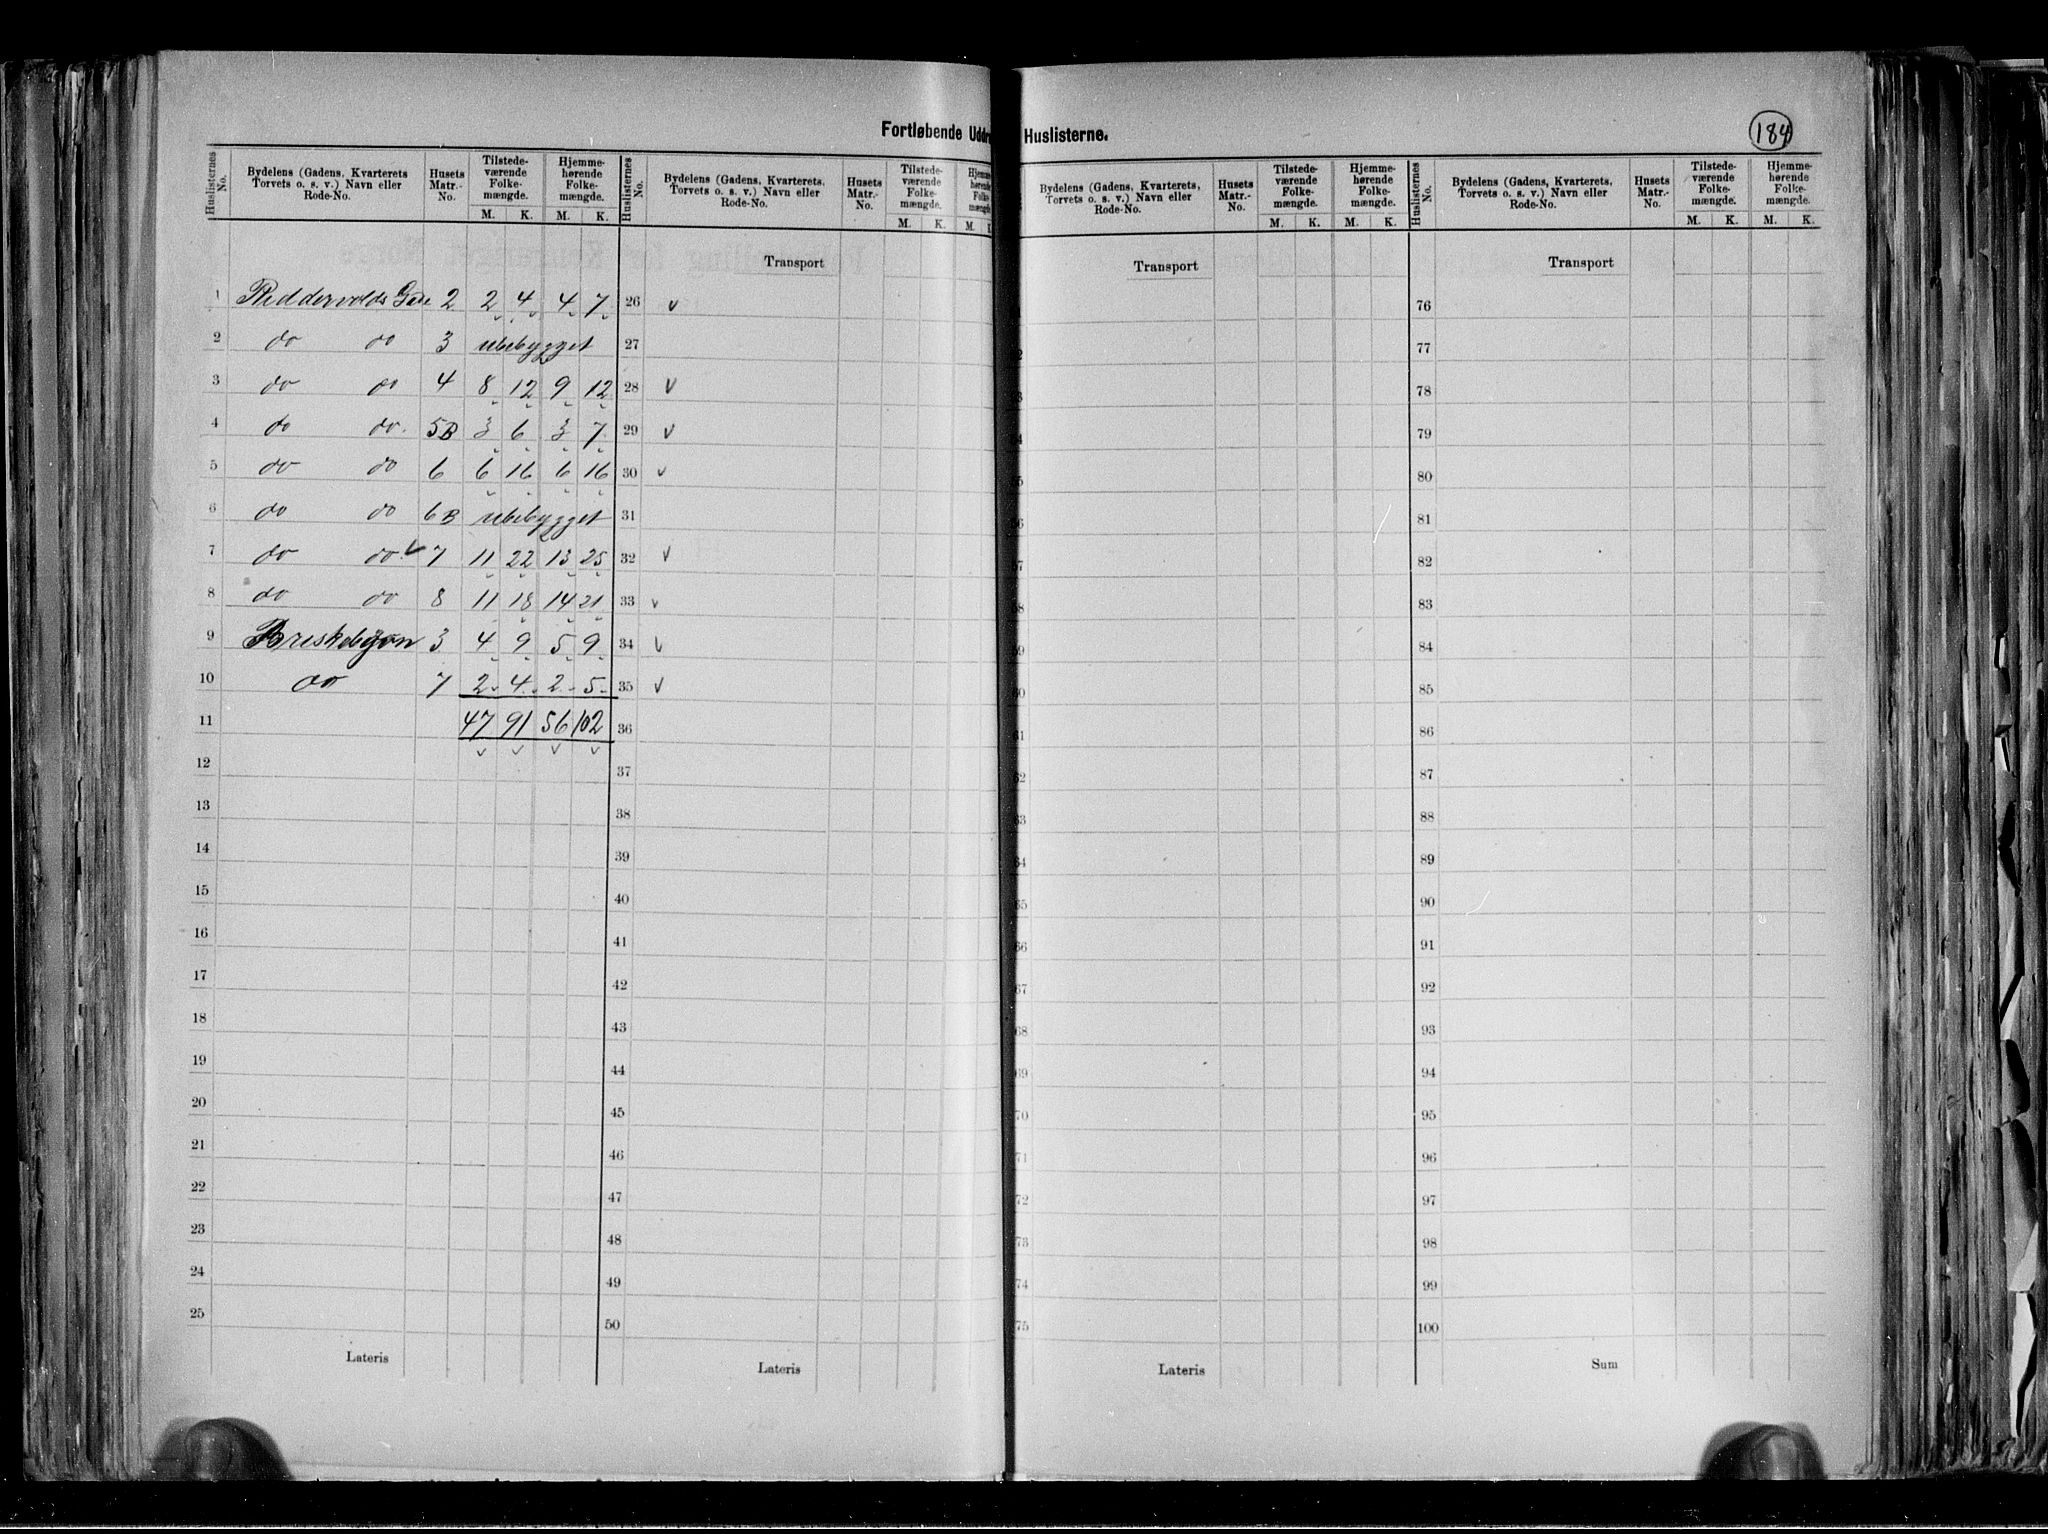 Fortløbende Uddr Huslisterne.
184
Huslisternes No. | Bydelens (Gadens, Kvarterets, Torvets o. s. v.) Navn eller Rode-No. | Husets Matr.-No. | Tilstedeværende Folkemængde. M. K. | Hjemmehørende Folkemængde. M. K.
1 Riddervolds Gade 2 2 4 4 7
2 do do 3 ubebygget
3 do do 4 8 12 9 12
4 do do. 5B 3 6 3 7
5 do do 6 6 16 6 16
6 do do 6B ubebygget
7 do do 7 11 22 13 25
8 do do 8 11 18 14 21
9 Briskebyvn 3 4 9 5 9
10 do 7 2 4 2 5
11 47 91 56 102
12
13
14
15
16
17
18
19
20
21
22
23
24
25
Lateris
Huslisternes No. | Bydelens (Gadens, Kvarterets, Torvets o. s. v.) Navn eller Rode-No. | Husets Matr.-No. | Tilstedeværende Folkemængde. M. K. | Hjemmehørende Folkemængde. M. K.
Transport
26 v
27
28 v
29 v
30 v
31
32 v
33 v
34 v
35 v
36
37
38
39
40
41
42
43
44
45
46
47
48
49
50
Lateris
Bydelens (Gadens, Kvarterets, Torvets o. s. v.) Navn eller Rode-No. | Husets Matr.-No. | Tilstedeværende Folkemængde. M. K. | Hjemmehørende Folkemængde. M. K.
Transport
60
61
62
63
64
65
66
67
68
69
70
71
72
73
74
75
Lateris
Huslisternes No. | Bydelens (Gadens, Kvarterets, Torvets o. s. v.) Navn eller Rode-No. | Husets Matr.-No. | Tilstedeværende Folkemængde. M. K. | Hjemmehørende Folkemængde. M. K.
Transport
76
77
78
79
80
81
82
83
84
85
86
87
88
89
90
91
92
93
94
95
96
97
98
99
100
Sum